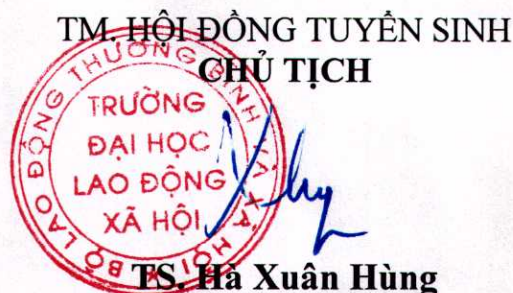 TM. HỘI ĐỒNG TUYỂN SINH
CHỦ TỊCH
BỘ LAO ĐỘNG THƯƠNG BINH VÀ XÃ HỘI
TRƯỜNG
ĐẠI HỌC
LAO ĐỘNG
XÃ HỘI
TS. Hà Xuân Hùng